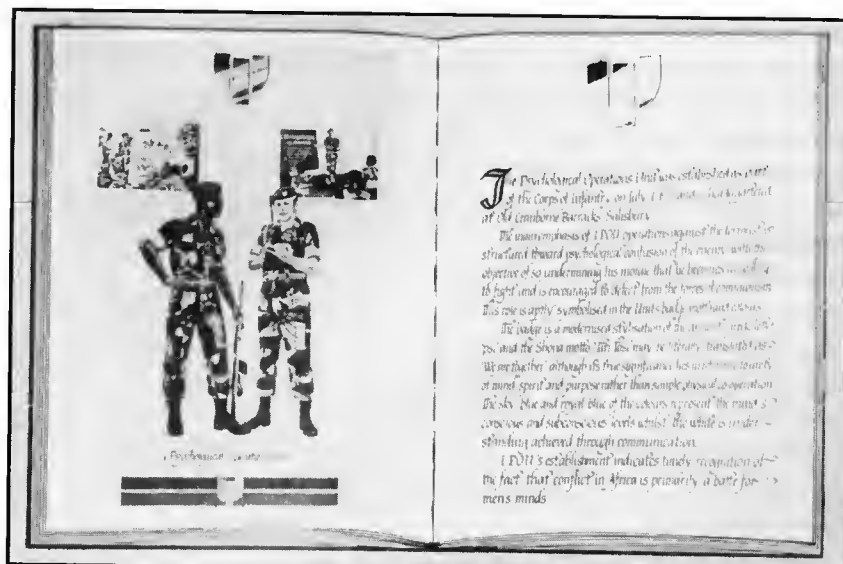 Psychological
The Psychological Operations Unit was established as part
of the Corps of Infantry on July
at Old Cranborne Barracks Salisbury
The main emphasis of 1 POU operations against the terrorist is
structured toward psychological confusion of the enemy with the
objective of so undermining his morale that he becomes
to fight and is encouraged to defect from the forces of communism
This role is aptly symbolised in the Unit's badge motto and colours
The badge is a modernised stylisation of the
and the Shona motto may be literally translated as
'We are together' although its true significance has to unity
of mind spirit and purpose rather than simple physical co-operation
The sky blue and royal blue of the colours represent the mind's
conscious and subconscious levels whilst the white is under-
standing achieved through communication.
1 POU's establishment indicates timely recognition of
the fact that conflict in Africa is primarily a battle for
men's minds